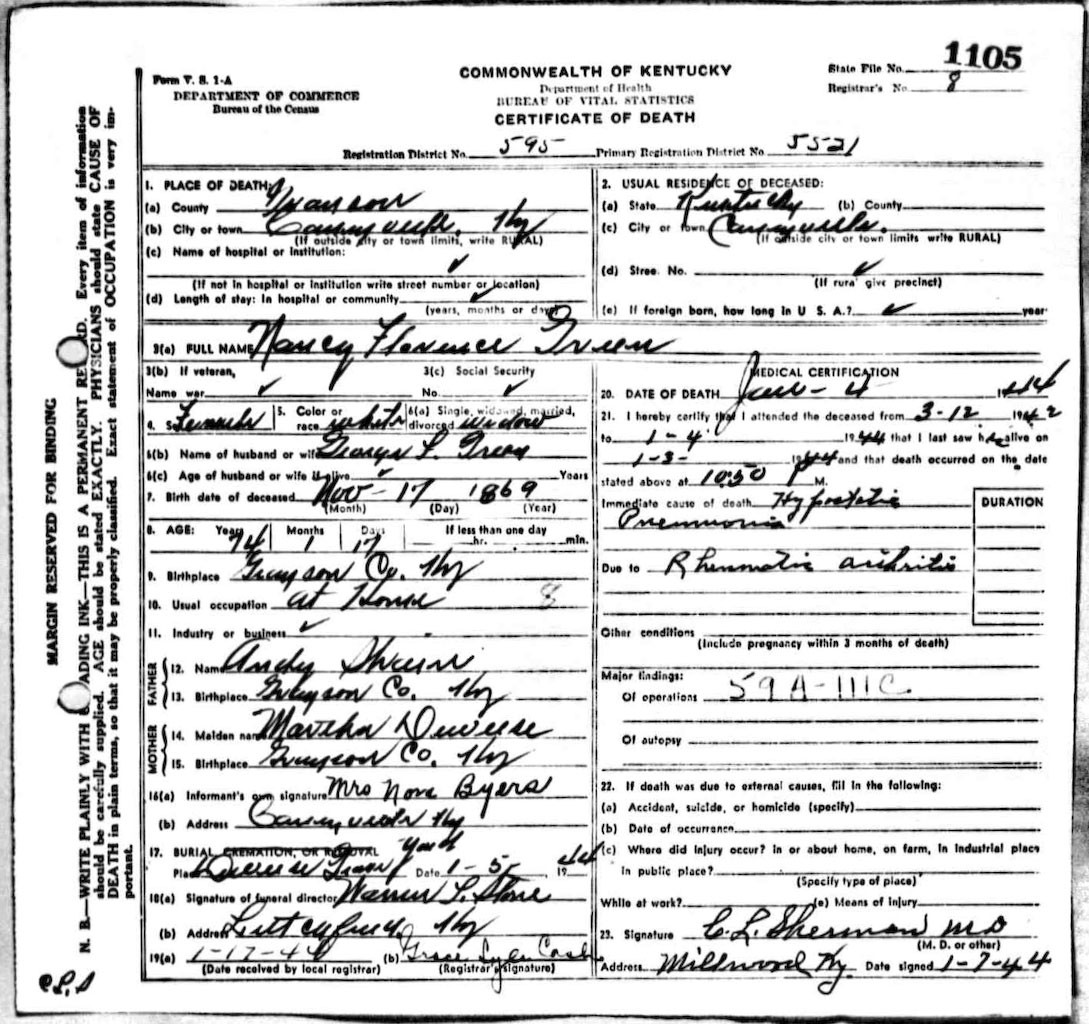 1105
COMMONWEALTH OF KENTUCKY
Form V. S. 1-A
DEPARTMENT OF COMMERCE
Bureau of the Census
Department of Health
BUREAU OF VITAL STATISTICS
CERTIFICATE OF DEATH
State File No.
Registrar's No. 8
Registration District No. 595 Primary Registration District No. 5521
MARGIN RESERVED FOR BINDING
N. B.—WRITE PLAINLY WITH ADING INK—THIS IS A PERMANENT RE RD. Every item of information
should be carefully supplied. AGE should be stated EXACTLY. PHYSICIANS should state CAUSE OF
DEATH in plain terms, so that it may be properly classified. Exact statement of OCCUPATION is very im-
portant.
1. PLACE OF DEATH:
(a) County Grayson
(b) City or town Caneyville, Ky
(If outside city or town limits, write RURAL)
(c) Name of hospital or institution:
✓
(If not in hospital or institution write street number or location)
(d) Length of stay: In hospital or community ✓
(years, months or days)
2. USUAL RESIDENCE OF DECEASED:
(a) State Kentucky (b) County
(c) City or town Caneyville.
(If outside city or town limits write RURAL)
(d) Stree. No. ✓
(If rural give precinct)
(e) If foreign born, how long in U S. A.? ✓ year
3(a) FULL NAME Nancy Florence Green
3(b) If veteran, 3(c) Social Security
Name war ✓ No. ✓
4. Sex Female 5. Color or race white 6(a) Single, widowed, married, divorced widow
6(b) Name of husband or wife George L. Green
6(c) Age of husband or wife if alive ✓ Years
7. Birth date of deceased Nov - 17 1869
(Month) (Day) (Year)
8. AGE: Years Months Days If less than one day
74 1 17 hr. min.
9. Birthplace Grayson Co. Ky
10. Usual occupation at Home 8
11. Industry or business ✓
FATHER
12. Name Andy
13. Birthplace Grayson Co. Ky
MOTHER
14. Maiden name Martha Deweese
15. Birthplace Grayson Co. Ky
16(a) Informant's own signature Mrs Nora Byers
(b) Address Caneyville Ky
17. BURIAL, CREMATION, OR REMOVAL Yard
Place Deweese Grave Date 1-5- 1944
18(a) Signature of funeral director Warren L. Stone
(b) Address Leitchfield, Ky
19(a) 1-17-44 (b) Grace Cash
(Date received by local registrar) (Registrar's signature)
MEDICAL CERTIFICATION
20. DATE OF DEATH Jan - 4 1944
21. I hereby certify that I attended the deceased from 3-12 1942
to 1-4 1944 that I last saw her alive on
1-3- 1944 and that death occurred on the date
stated above at 10:50 P M.
Immediate cause of death Hypostatic
Pneumonia
DURATION
Due to Rheumatic arthritis
Other conditions
(Include pregnancy within 3 months of death)
Major findings:
Of operations 59A-111C
Of autopsy
22. If death was due to external causes, fill in the following:
(a) Accident, suicide, or homicide (specify)
(b) Date of occurrence
(c) Where did injury occur? In or about home, on farm, in industrial place
in public place?
(Specify type of place)
While at work? (e) Means of injury
23. Signature C. L. Sherman MD
(M. D. or other)
Address Millwood Ky. Date signed 1-7-44